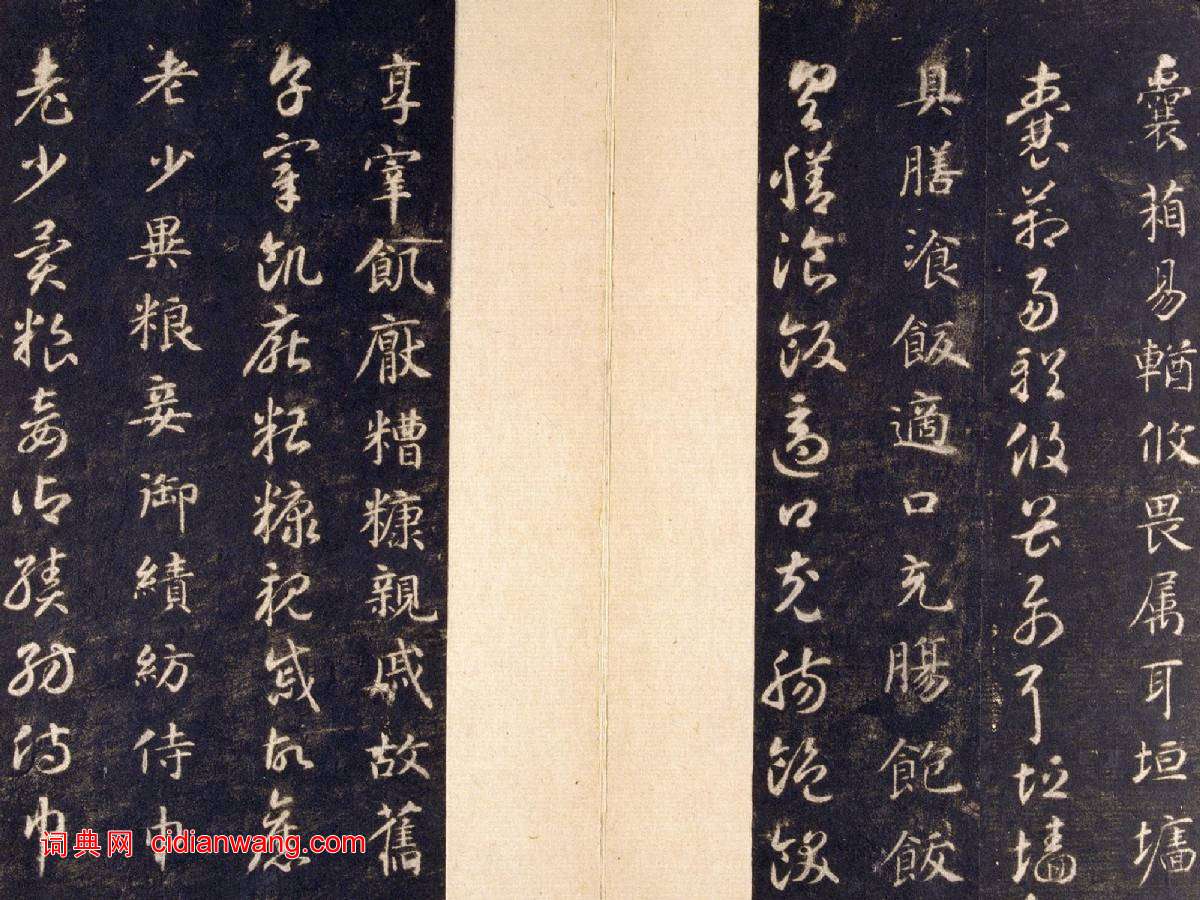 囊箱易輶攸畏属耳垣墻
囊箱易輶攸畏属耳垣墻
具膳飡飯適口充腸飽飫
具膳飡飯適口充腸飽飫
享宰飢厭糟糠親戚故舊
享宰飢厭糟糠親戚故舊
老少異粮妾御績紡侍巾
老少異粮妾御績紡侍巾
词典网 cidianwang.com